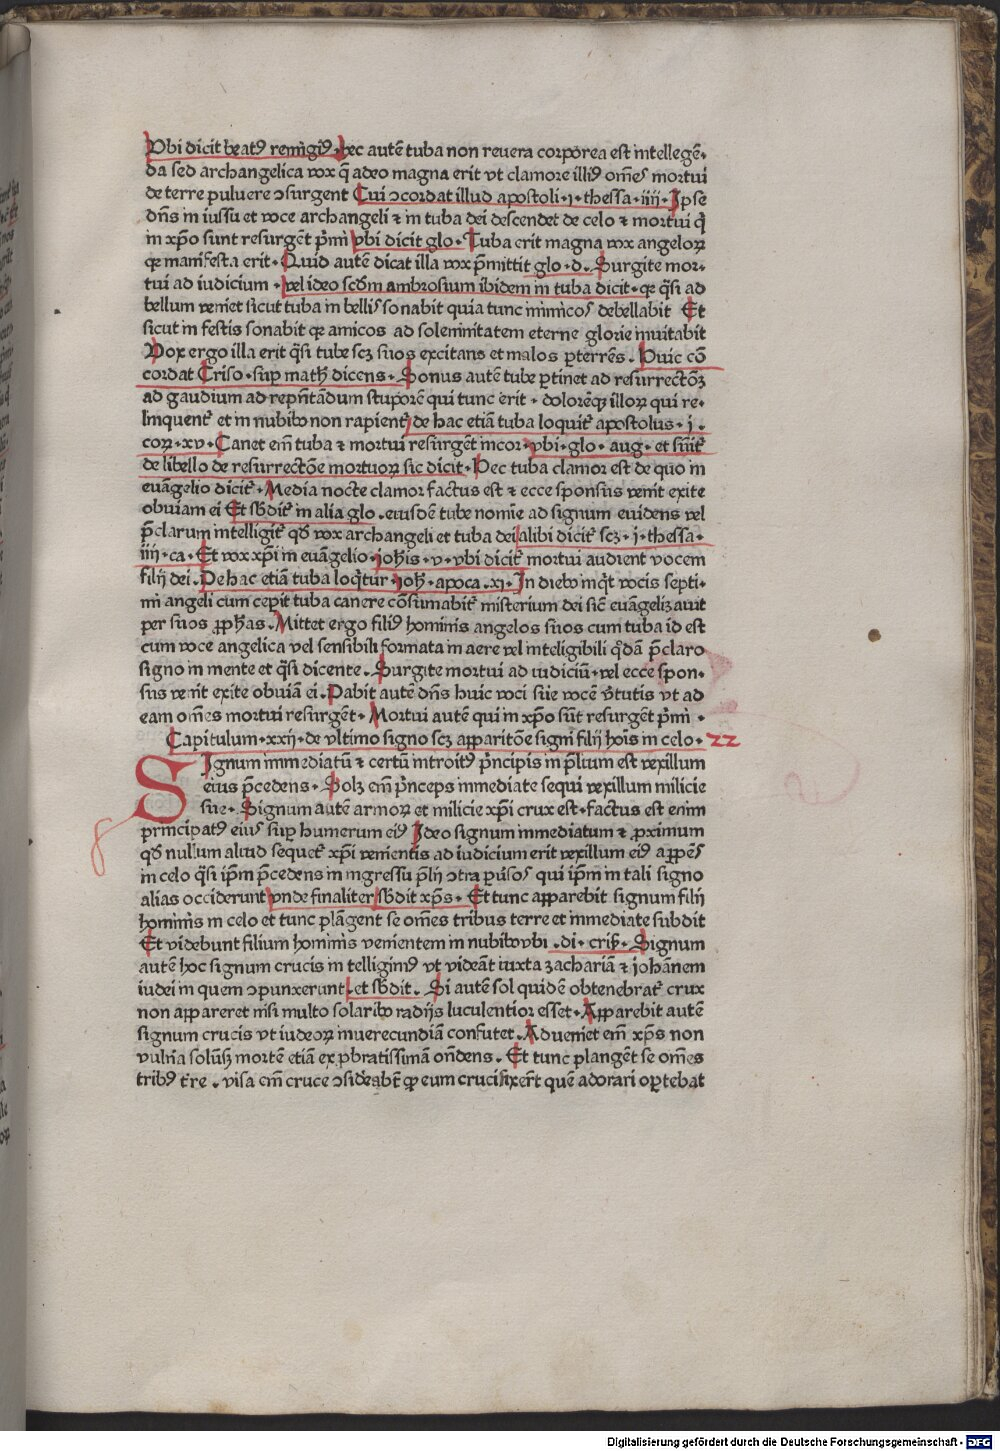 Vbi dicit beatꝰ remigiꝰ · hec autē tuba non revera corporea est intellegē·
da sed archangelica vox q̄ adeo magna erit vt clamore illiꝰ om̄es mortui
de terre puluere ↄsurgent Cui ↄcordat illud apostoli · i · thessa · iiii · Ipse
dn̄s in iussu et voce archangeli ⁊ in tuba dei descendet de celo ⁊ mortui q̇
in xp̄o sunt resurgēt p̄mi vbi dicit glo · Tuba erit magna vox angeloꝝ
qꝫ manifesta erit · Quid autē dicat illa vox p̄mittit glo · d · Surgite mor·
tui ad iudicium · vel ideo scd̄m ambrosium ibidem in tuba dicit · qꝫ q̄si ad
bellum veniet sicut tuba in bellis sonabit quia tunc inimicos debellabit Et
sicut in festis sonabit qꝫ amicos ad solemnitatem eterne glorie inuitabit
Vox ergo illa erit q̄si tube scꝫ suos excitans et malos ꝑterrēs · Huic cō
cordat Criso · suꝑ math̄ dicens · Sonus autē tube ꝑtinet ad resurrectōꝫ
ad gaudium ad rep̄ntādum stuporē qui tunc erit · dolorēqꝫ illoꝝ qui re·
linquentꝭ et in nubibꝰ non rapientꝭ de hac etiā tuba loquitꝭ apostolus · i ·
coꝝ · xv · Canet em̄ tuba ⁊ mortui resurgēt incor · vbi · glo · aug · et sūitꝭ
de libello de resurrectōe mortuoꝝ sic dicit · Hec tuba clamor est de quo in
euāgelio dicitꝭ · Media nocte clamor factus est ⁊ ecce sponsus venit exite
obuiam ei Et sb̄ditꝭ in alia glo · eiusdē tube nomīe ad signum euidens vel
p̄clarum intelligitꝭ qd̄ vox archangeli et tuba dei alibi dicitꝭ scꝫ · i · thessa ·
iiii · ca · Et vox xp̄i in euāgelio · ioh̄is · v · vbi dicitꝭ mortui audient vocem
filij dei · De hac etiā tuba loq̇tur · ioh̄ · apoca · xi · In diebꝰ inq̇t vocis septi·
mi angeli cum ceꝑit tuba canere cōsumabitꝭ misterium dei sic̄ euāgelizauit
per suos ꝓph̄as · Mittet ergo filiꝰ hominis angelos suos cum tuba id est
cum voce angelica vel sensibili formata in aere vel inteligibili q̇dā p̄claro
signo in mente et q̄si dicente · Surgite mortui ad iudiciū · vel ecce spon·
sus venit exite obuiā ei · Dabit autē dn̄s huic voci sue vocē v̄tutis vt ad
eam om̄es mortui resurgēt · Mortui autē qui in xp̄o sūt resurgēt p̄mi ·
Capitulum · xxij · de vltimo signo scꝫ apparitōe signi filij hoīs in celo · 22
Signum immediatū ⁊ certū introitꝰ p̄ncipis in p̄lium est vexillum
eius p̄cedens · Solꝫ em̄ p̄nceps inmediate sequi vexillum milicie
sue · Signum autē armoꝝ et milicie xp̄i crux est · factus est enim
principatꝰ eius suꝑ humerum eiꝰ Ideo signum inmediatum ⁊ ꝓximum
qd̄ nullum aliud sequetꝭ xp̄i venientis ad iudicium erit vexillum eiꝰ appēs
in celo q̄si ip̄m p̄cedens in ingressu p̄lij ↄtra ꝑuīsos qui ip̄m in tali signo
alias occiderunt vnde finaliter sb̄dit xp̄s · Et tunc apparebit signum filij
hominis in celo et tunc plāgent se om̄es tribus terre et inmediate subdit
Et videbunt filium hominis venientem in nubibꝰ vbi · di · cris̄ · Signum
autē hoc signum crucis in telligimꝰ vt videāt iuxta zachariā ⁊ iohānem
iudei in quem ↄpunxerunt · et sb̄dit · Si autē sol quidē obtenebratꝭ crux
non appareret nisi multo solaribꝰ radijs luculentior esset · Apparebit autē
signum crucis vt iudeoꝝ inuerecundiā confutet · Adveniet em̄ xp̄s non
vuln̄a solūꝫ mortē etiā exꝓbratissimā on̄dens · Et tunc plangēt se om̄es
tribꝰ t̄re · visa em̄ cruce ↄsideab̄t qꝫ eum crucifixer̄t quē adorari oꝑtebat
Digitalisierung gefördert durch die Deutsche Forschungsgemeinschaft · DFG